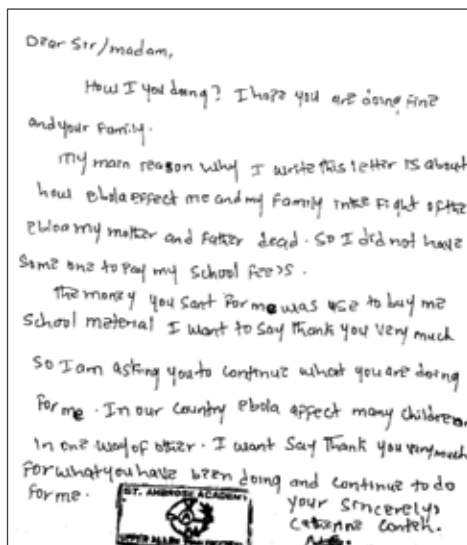 Dear Sir/madam,
How I you doing? I hope you are doing fine
and your Family.
my main reason why I write this letter is about
how ebola effect me and my Family in the Fight of the
ebloa my mother and Father dead. So I did not have
Some one to Pay my School fees.
the money you sant For me was use to buy me
School material I want to say thank you very much
So I am asking you to continue what you are doing
For me. In our country ebola affect many children
in one way of other. I want Say Thank you very much
For what you have been doing and continue to do
For me.
ST. AMBROSE ACADEMY
UPPER ALLEN TOWN
your Sincerely,
Catherine Conteh.